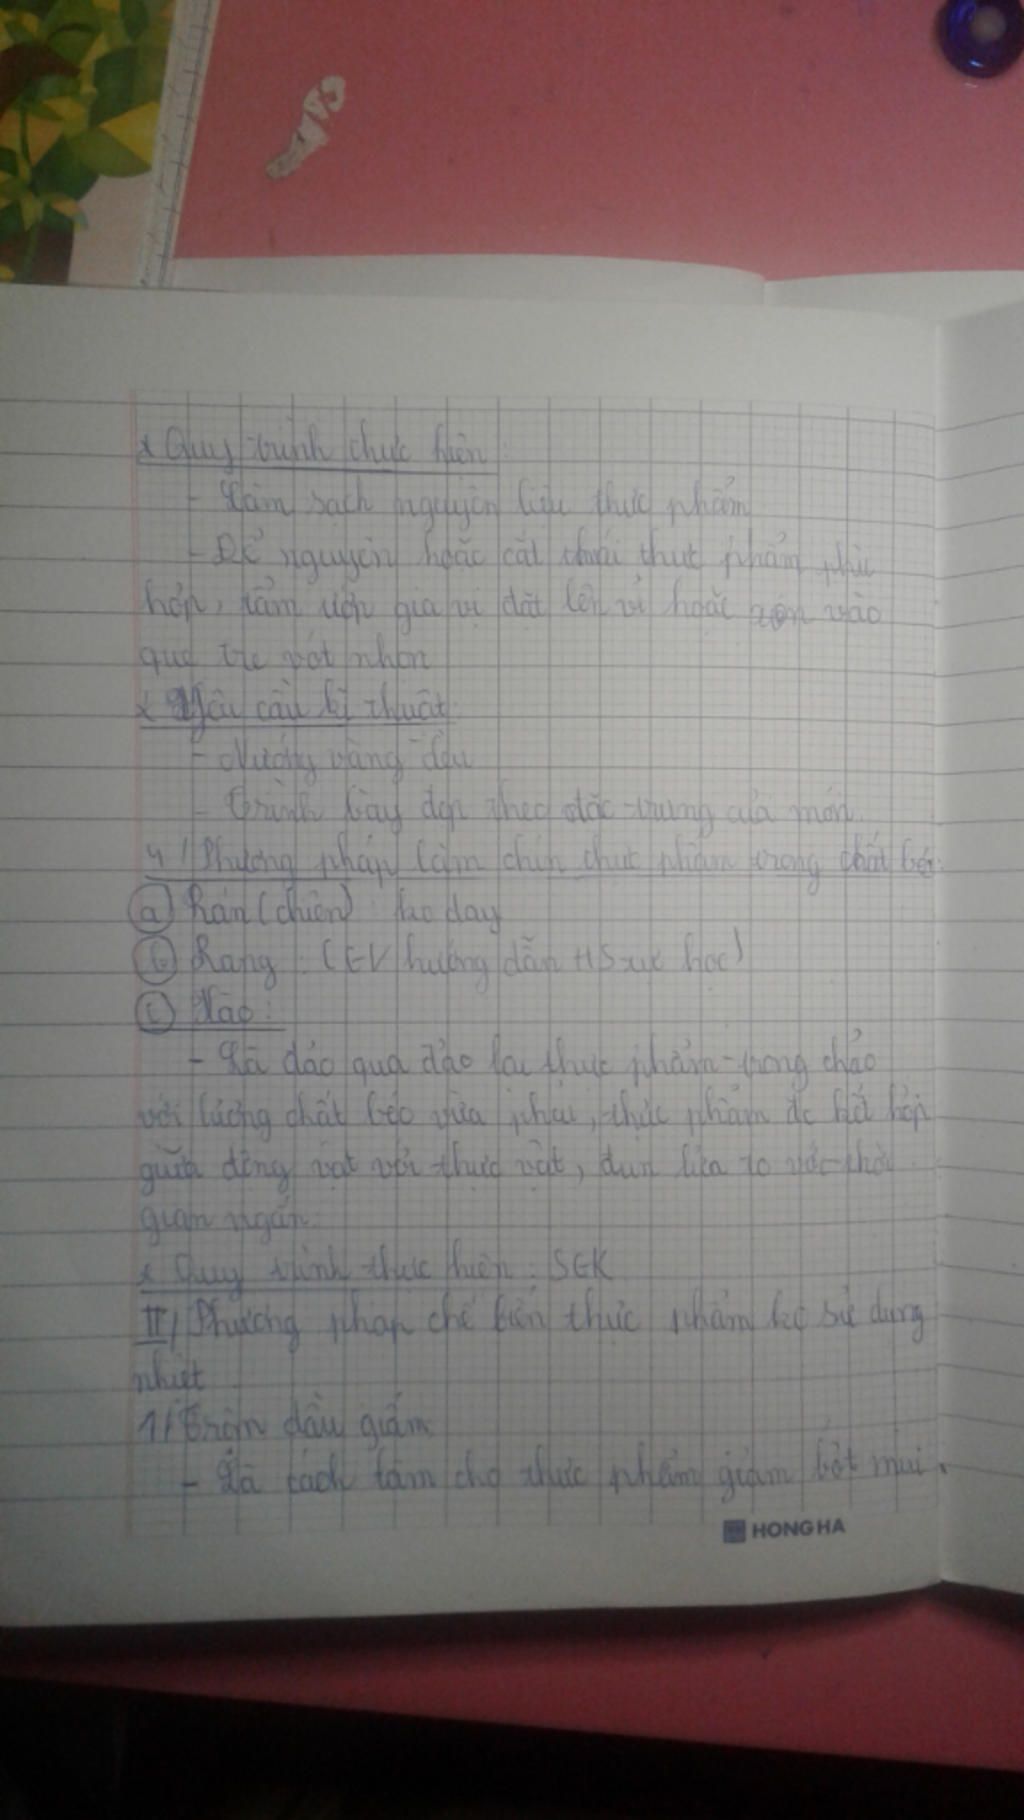 * Quy trình thực hiện:
- Làm sạch nguyên liệu thực phẩm
- Để nguyên hoặc cắt thái thực phẩm phù
hợp, tẩm ướp gia vị đặt lên vỉ hoặc xiên vào
que tre vót nhọn
* Yêu cầu kĩ thuật:
- Nướng vàng đều
- Trình bày đẹp theo đặc trưng của món.
4/ Phương pháp làm chín thực phẩm trong chất béo:
a) Rán (chiên): ko dạy
b) Rang: (GV hướng dẫn HS tự học)
c) Xào:
- Là đảo qua đảo lại thực phẩm trong chảo
với lượng chất béo vừa phải, thực phẩm đc kết hợp
giữa động vật với thực vật, đun lửa to với thời
gian ngắn.
* Quy trình thực hiện: SGK
II/ Phương pháp chế biến thực phẩm ko sử dụng
nhiệt
1/ Trộn dầu giấm
- Là cách làm cho thực phẩm giảm bớt mùi
HONG HA